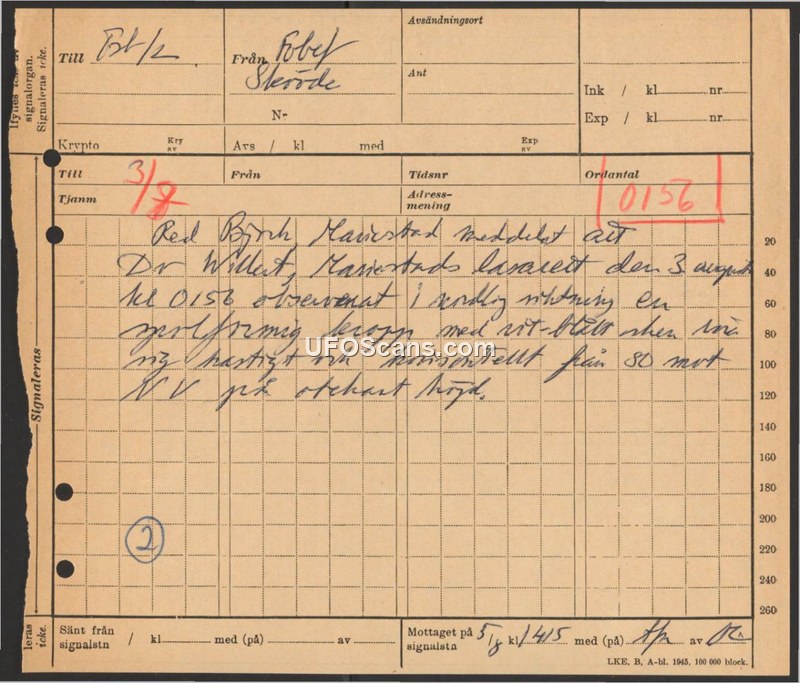 Ifylles
signalorgan.
Signaleras icke.
Till
Från Fobef
Skövde
Nr
Krypto
Kry
av
Avs / kl med
Exp
av
Avsändningsort
Ant
Ink / kl nr
Exp / kl nr
Till
Från
Tidsnr
Ordantal
3/8
0156
Tjanm
Adress-
mening
Red Björk, Mariestad meddelat att
Dr Willert, Mariestads lasarett den 3 augusti
kl 0156 observerat i nordlig riktning en
spolformig kropp med vit-blått sken röra
sig hastigt och horisontellt från SO mot
NV på obekant höjd.
20
40
60
80
100
120
140
160
180
200
220
240
260
Signaleras
UFOScans.com
2
leras
icke.
Sänt från
signalstn / kl med (på) av
Mottaget på
signalstn 5/8 kl 1415 med (på) av
LKE, B, A-bl. 1945, 100 000 block.